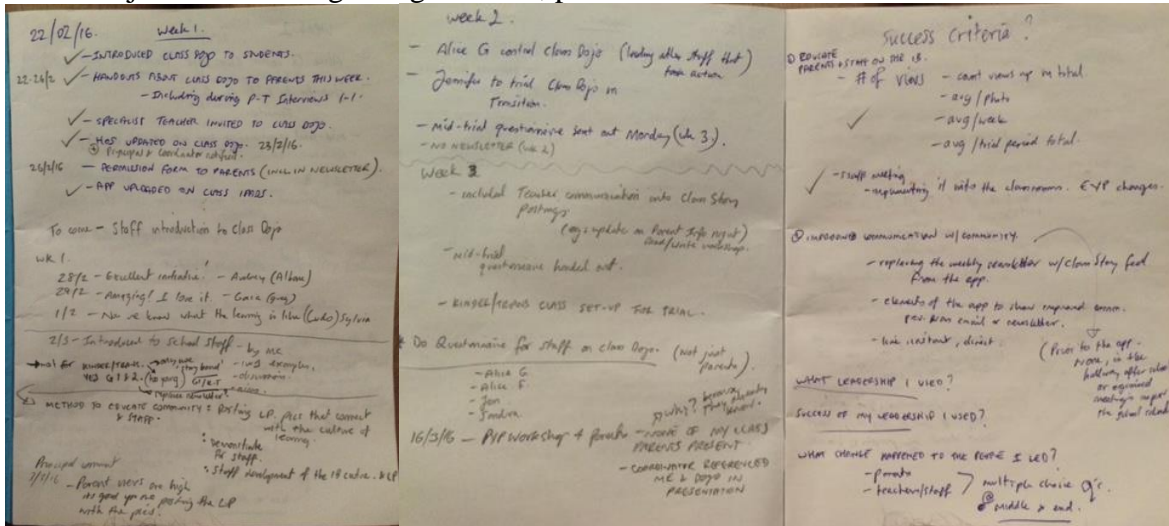 22/02/16. Week 1.
✓ - INTRODUCED CLASS DOJO TO STUDENTS.
22-26/2 ✓ - HANDOUTS ABOUT CLASS DOJO TO PARENTS THIS WEEK.
- Including during P-T Interviews 1-1
✓ - SPECIALIST TEACHER INVITED TO CLASS DOJO.
✓ - HOS UPDATED ON CLASS DOJO. 23/2/16.
Principal & Coordinator notified.
26/2/16 - PERMISSION FORM TO PARENTS (INCL IN NEWSLETTER).
✓ - APP UPLOADED ON CLASS IPADS.
To come - Staff introduction to Class Dojo
wk 1.
28/2 - Excellent initiative! - Audrey
29/2 - Amazing! I love it.
1/2 - Now we know what the learning is like Sylvia
2/3 - Introduced to School Staff - by me
- discussion.
METHOD TO EDUCATE COMMUNITY & STAFF: Posting LP, pics that connect
with the culture of
learning.
Demonstrate
for staff.
Staff development of the IB
Principal comment
- Parent views are high
its good you're posting the LP
with the pics.
Week 2.
- Alice G control Class Dojo (leading other staff that
took action)
- Jennifer to trial Class Dojo in
Transition.
- Mid-trial questionnaire sent out Monday (wk 3).
- NO NEWSLETTER (wk 2)
Week 3
- included Teacher communication into Class Story
Postings
(eg: update on Parent Info night)
Read/write workshop.
- Mid-trial
questionnaire handed out.
- KINDER/TRANS CLASS SET-UP FOR TRIAL.
* Do Questionnaire for staff on Class Dojo. (Not just
parents).
- Alice G.
- Alice F.
- Jen
- Sandra
16/3/16 - PYP Workshop 4 Parents - NONE OF MY CLASS
PARENTS PRESENT.
why? because
they already
know.
- COORDINATOR REFERENCED
ME & DOJO IN
PRESENTATION
Success Criteria?
① EDUCATE
PARENTS & STAFF ON THE IB.
- # of views - count views up in total.
- avg/photo
✓ - avg/week
- avg/trial period total.
✓ - staff meeting
- implementing it into the classroom. EYP changes.
② IMPROVED COMMUNICATION W/ COMMUNITY.
- replacing the weekly newsletter w/ Class Story feed
from the app.
- elements of the app to show improved comm.
than email or newsletter.
- like instant, direct.
(Prior to the app -
None, in the
hallway after school
or organised
meetings
WHAT LEADERSHIP I USED?
SUCCESS OF MY LEADERSHIP I USED?
WHAT CHANGE HAPPENED TO THE PEOPLE I LED?
- parents
- teachers/staff > multiple choice q's.
@ middle & end.